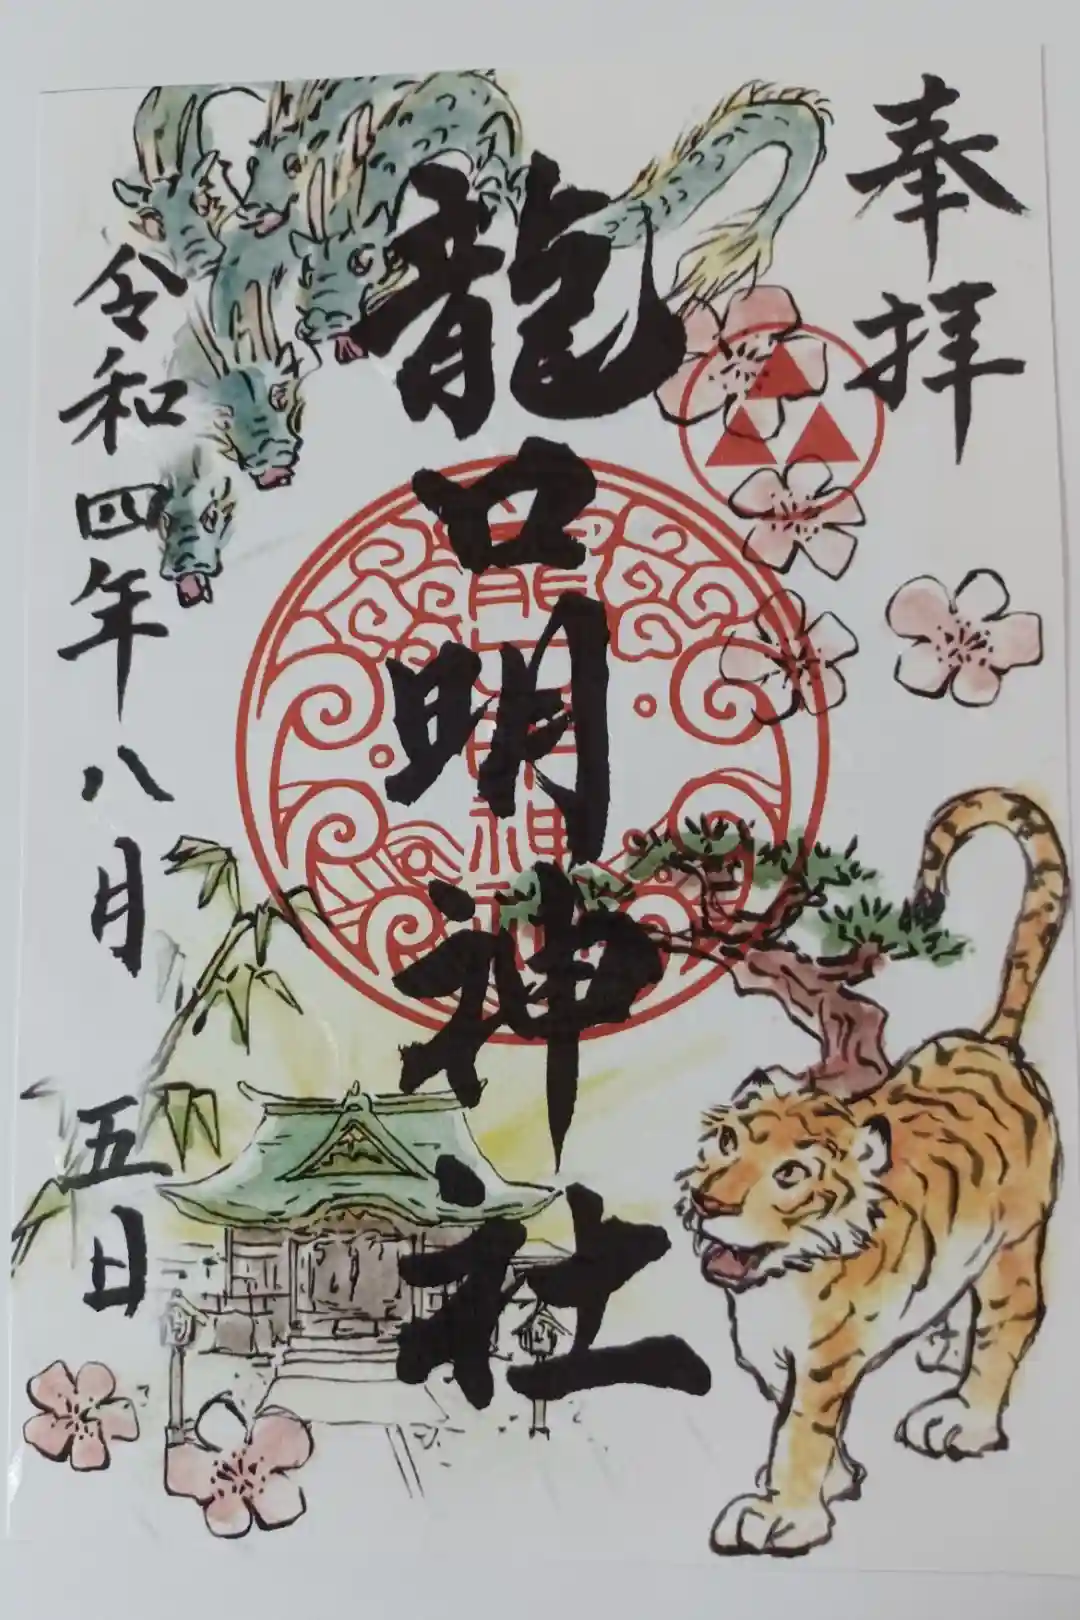 奉拝
龍口明神社
令和四年八月五日
龍口明神社